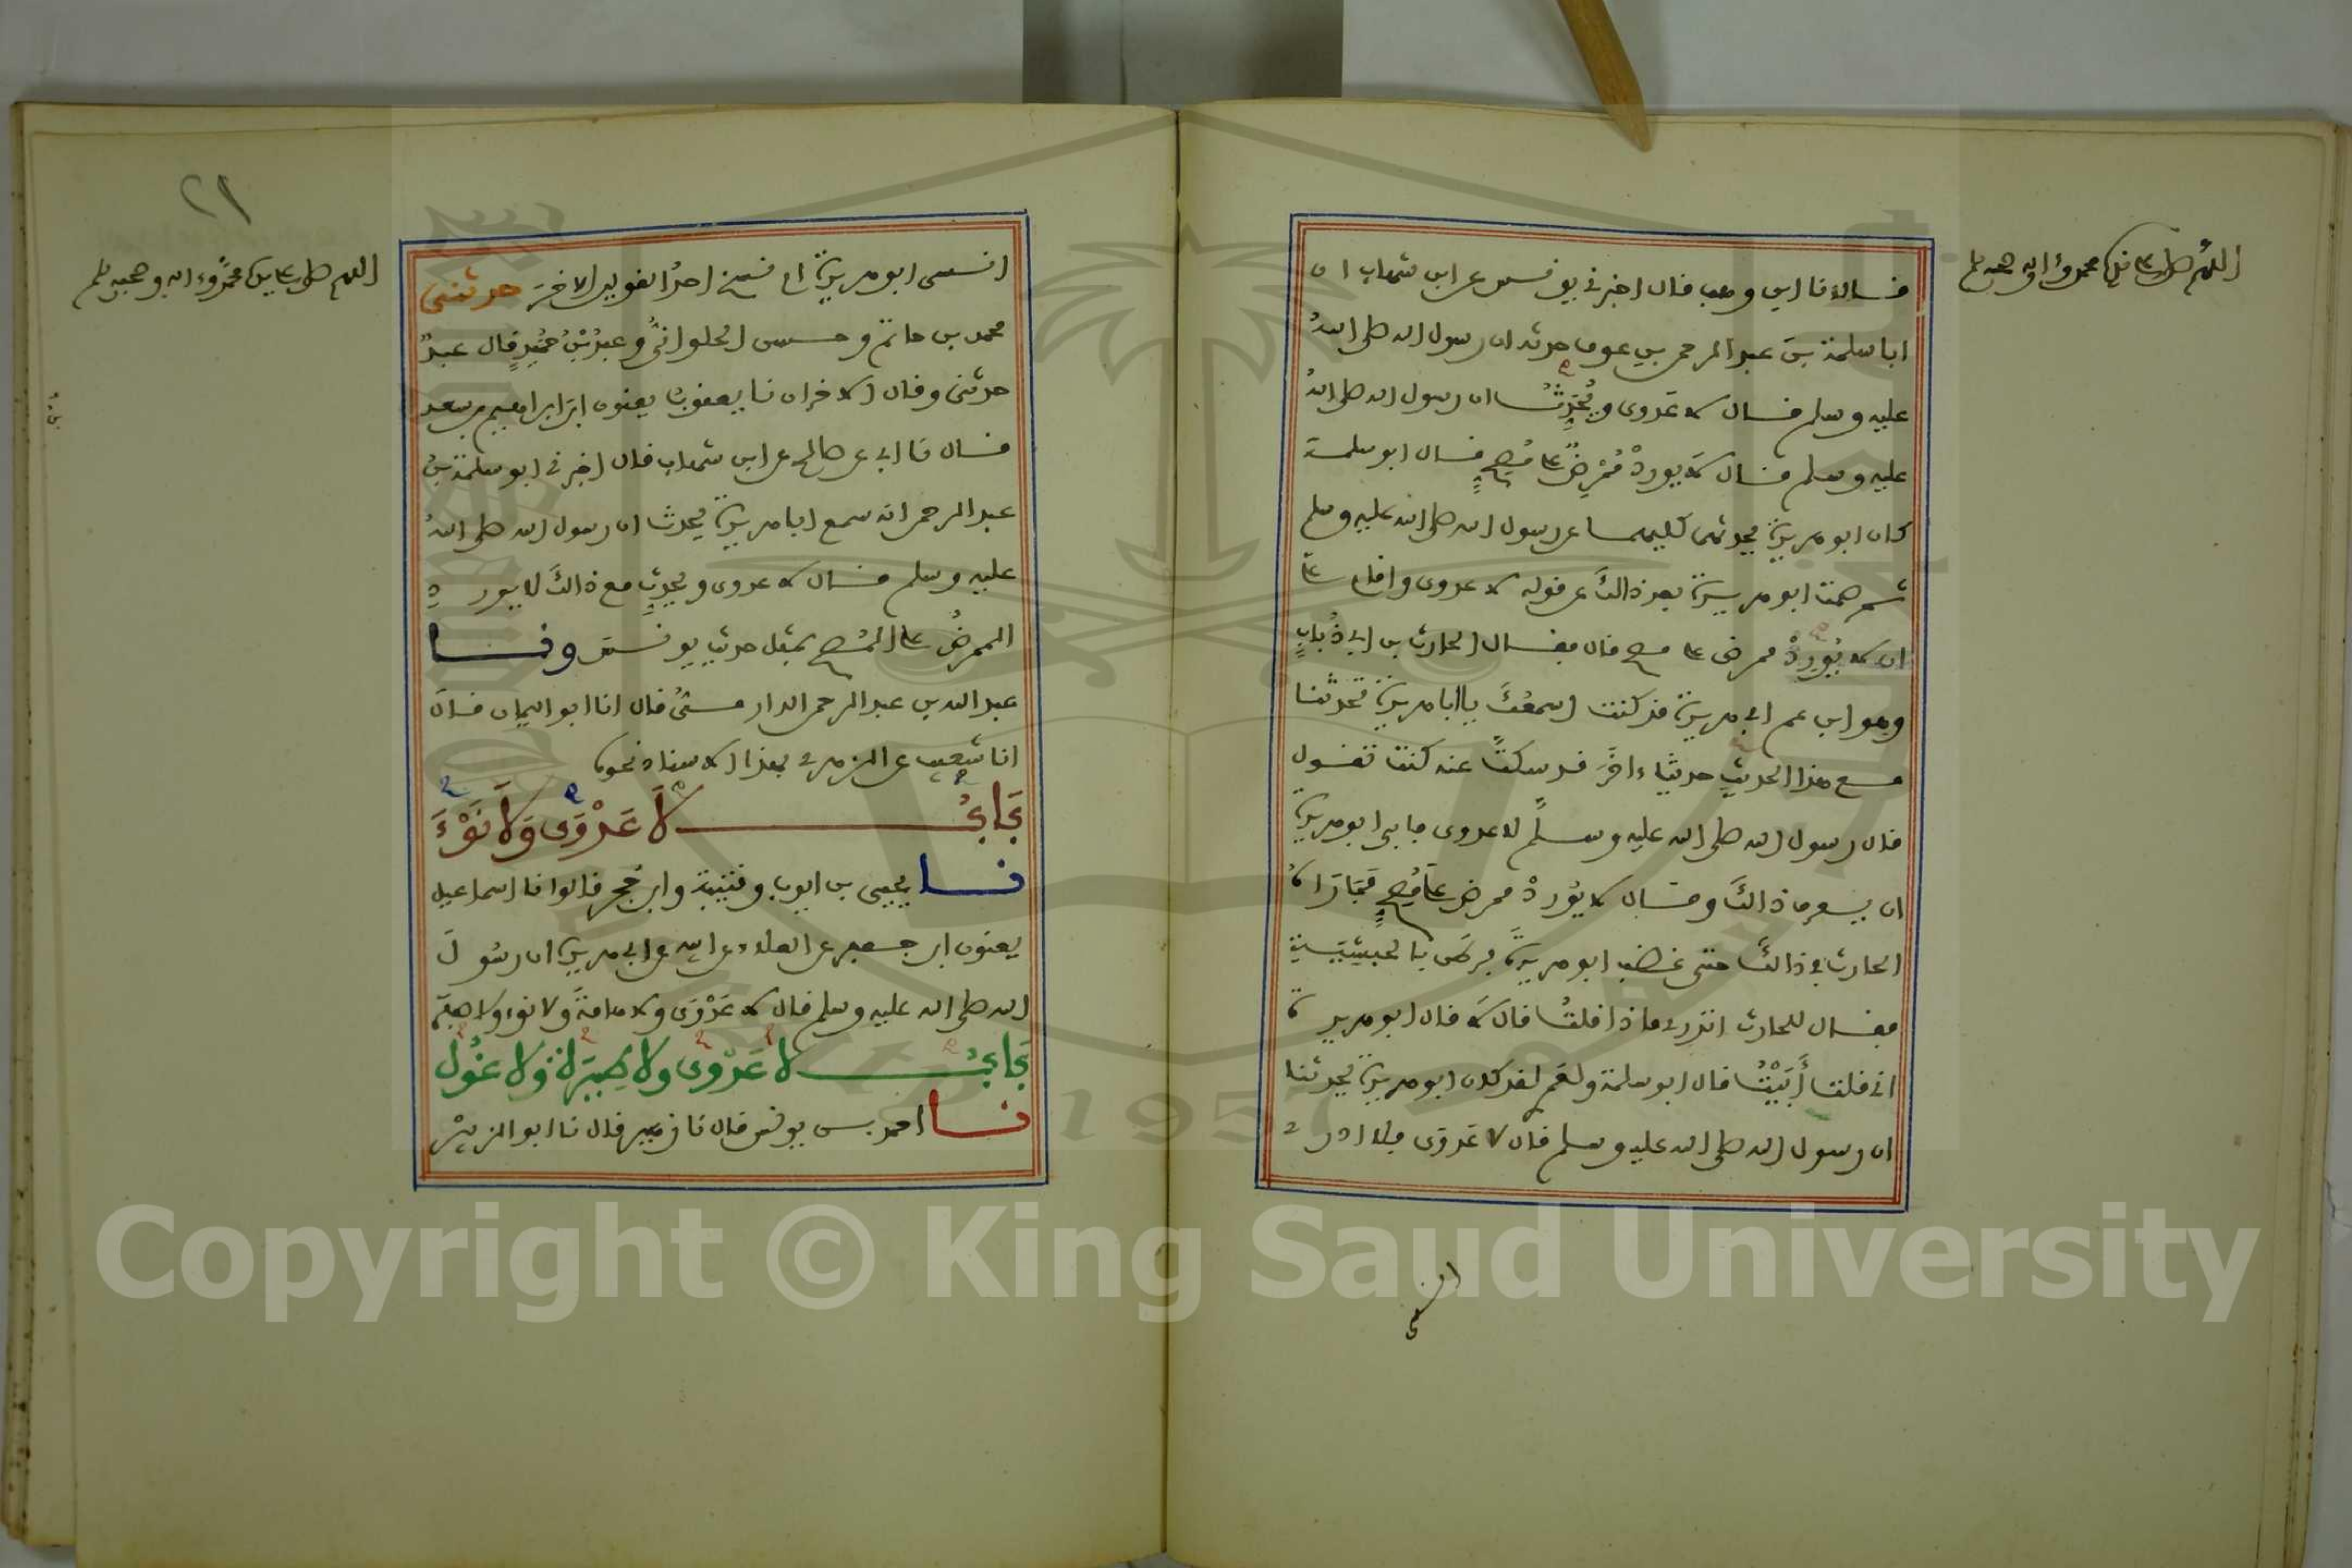 اللهم صل على سيدنا محمد وءاله وصحبه وسلم
قالا نا ابن وهب قال اخبرني يونس عن ابن شهاب ان
ابا سلمة بن عبد الرحمن بن عوف حدثه ان رسول الله صلى الله
عليه وسلم قال لا عدوى ويحدث ان رسول الله صلى الله
عليه وسلم قال لا يورد ممرض على مصح قال ابو سلمة
كان ابو هريرة يحدثهما كليهما عن رسول الله صلى الله عليه وسلم
ثم صمت ابو هريرة بعد ذالك عن قوله لا عدوى واقام على
ان لا يورد ممرض على مصح قال فقال الحارث بن ابي ذباب
وهو ابن عم ابي هريرة قد كنت اسمعك يا ابا هريرة تحدثنا
مع هذا الحديث حديثا ءاخر قد سكت عنه كنت تقول
قال رسول الله صلى الله عليه وسلم لا عدوى فابى ابو هريرة
ان يعرف ذالك وقال لا يورد ممرض على مصح فما راه
الحارث في ذالك حتى غضب ابو هريرة فرطن بالحبشية
فقال للحارث اتدري ماذا قلت قال لا قال ابو هريرة
اني قلت أبيت قال ابو سلمة ولعمري لقد كان ابو هريرة يحدثنا
ان رسول الله صلى الله عليه وسلم قال لا عدوى فلا ادري
انسي
٢١
اللهم صل على سيدنا محمد وءاله وصحبه وسلم
انسى ابو هريرة او نسخ احد القولين الاخر حدثنى
محمد بن حاتم وحسن الحلواني وعبد بن حميد قال عبد
حدثني وقال الاخران نا يعقوب يعنون ابن ابراهيم بن سعد
قال نا ابي عن صالح عن ابن شهاب قال اخبرني ابو سلمة بن
عبد الرحمن انه سمع ابا هريرة يحدث ان رسول الله صلى الله
عليه وسلم قال لا عدوى ويحدث مع ذالك لا يورد
الممرض على المصح بمثل حديث يونس ونا
عبد الله بن عبد الرحمن الدارمي قال انا ابو اليمان قال
انا شعيب عن الزهري بهذا الاسناد نحوه
باب لا عدوى ولا نوء
نا يحيى بن ايوب وقتيبة وابن حجر قالوا نا اسماعيل
يعنون ابن جعفر عن العلاء عن ابيه عن ابي هريرة ان رسول
الله صلى الله عليه وسلم قال لا عدوى ولا هامة ولا نوء ولا صفر
باب لا عدوى ولا طيرة ولا غول
نا احمد بن يونس قال نا زهير قال نا ابو الزبير
Copyright © King Saud University
1957